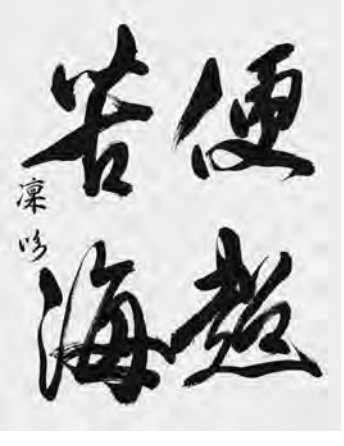 便超
苦海
凛